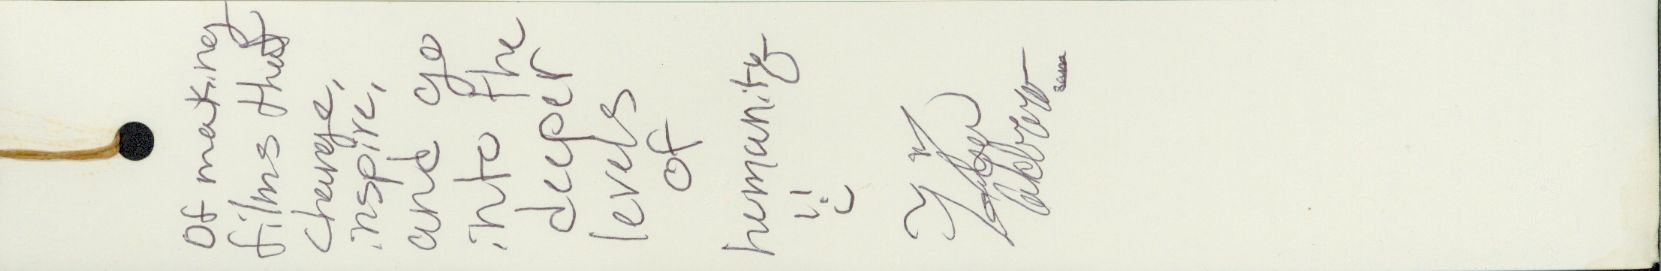 of making
films that
change,
inspire,
and go
into the
deeper
levels
of
humanity